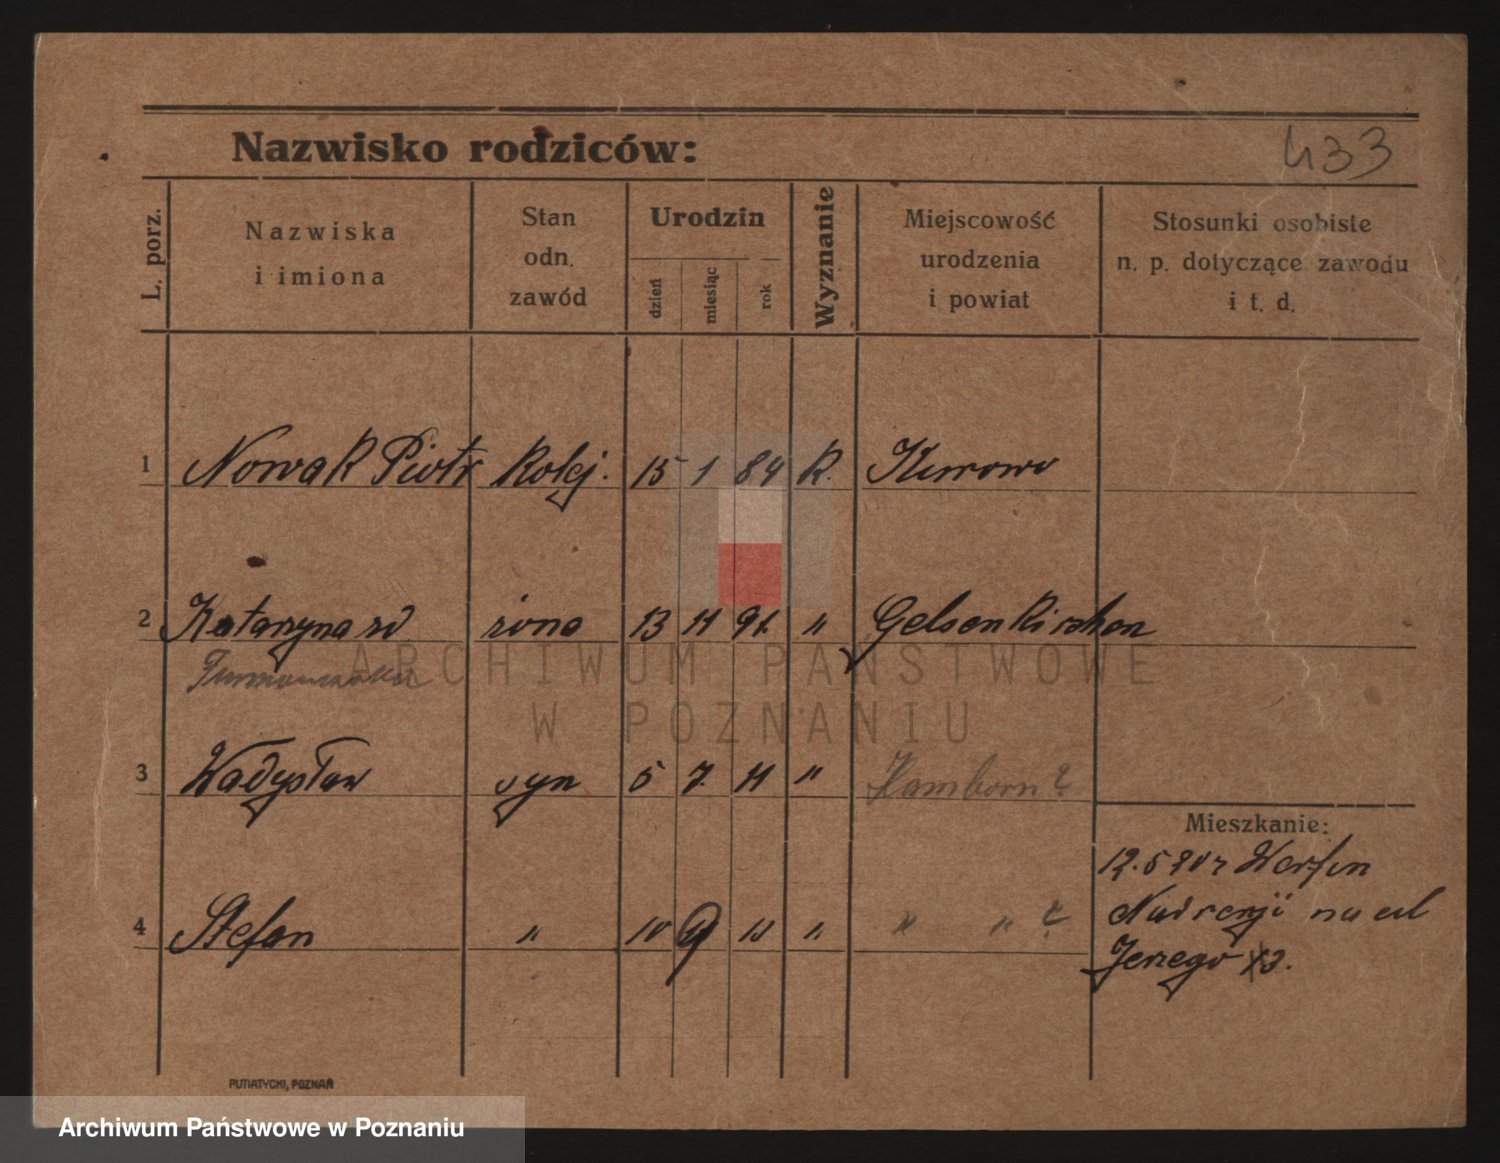 Nazwisko rodziców:
433
L. porz.
Nazwiska
i imiona
Stan
odn.
zawód
Urodzin
dzień
miesiąc
rok
Wyznanie
Miejscowość
urodzenia
i powiat
Stosunki osobiste
n. p. dotyczące zawodu
i t. d.
1 Nowak Piotr Kolej. 15 1 84 K.
2 Katarzyna żona 13 11 91. " Gelsenkirchen
3 Władysław syn 5 7. 11 " Hamborn ?
4 Stefan " 10 9 " " " ?
Mieszkanie:
12.5
Jerzego
ARCHIWUM PAŃSTWOWE
W POZNANIU
PUTIATYCKI, POZNAŃ
Archiwum Państwowe w Poznaniu